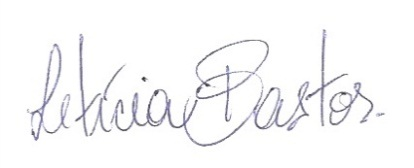 Letícia Bastos.